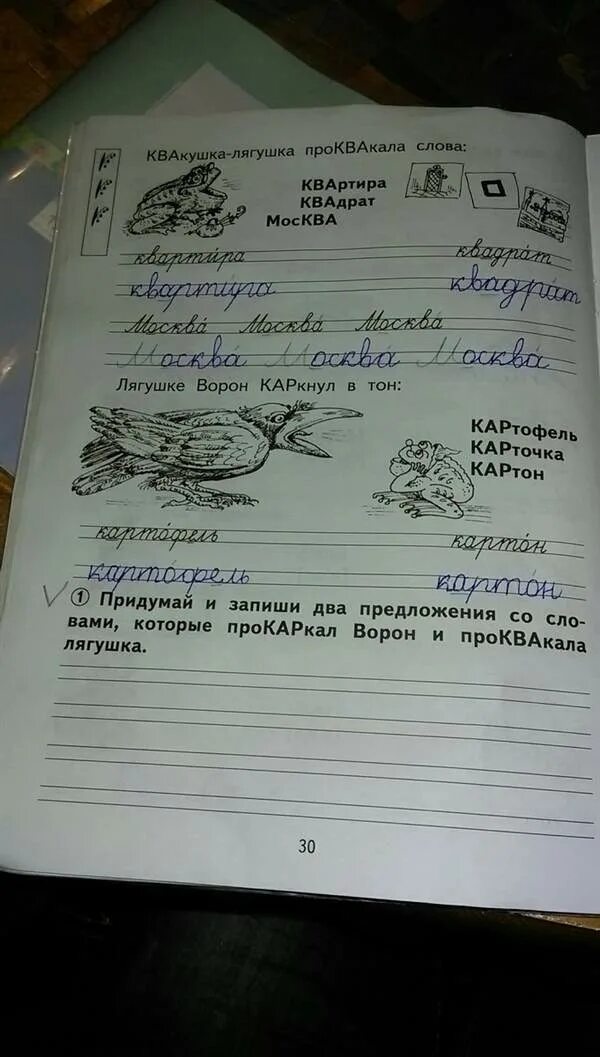 КВАкушка-лягушка проКВАкала слова:
КВАртира
КВАдрат
МосКВА
кварти́ра квадра́т
кварти́ра квадра́т
Москва́ Москва́ Москва́
Москва́ Москва́ Москва́
Лягушке Ворон КАРкнул в тон:
КАРтофель
КАРточка
КАРтон
карто́фель карто́н
карто́фель карто́н
1 Придумай и запиши два предложения со сло-
вами, которые проКАРкал Ворон и проКВАкала
лягушка.
30